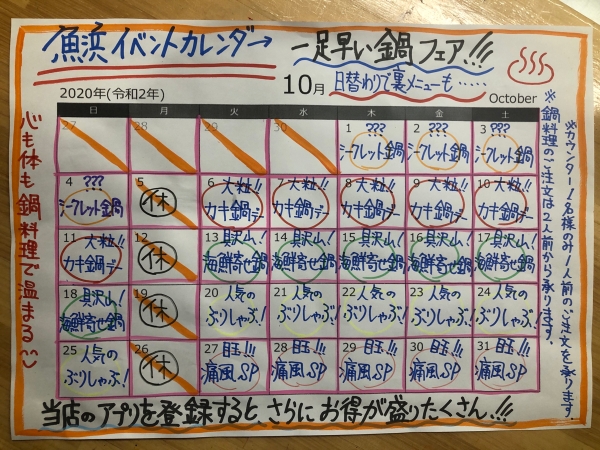 魚浜イベントカレンダー→
一足早い鍋フェア!!!
2020年(令和2年)
10月
日替わりで裏メニューも.....
October
日 月 火 水 木 金 土
27 28 29 30 1 ??? 2 ??? 3 ???
シークレット鍋 シークレット鍋 シークレット鍋
4 ??? 5 6 大粒!! 7 大粒!! 8 大粒!! 9 大粒!! 10 大粒!!
シークレット鍋 休 カキ鍋デー カキ鍋デー カキ鍋デー カキ鍋デー カキ鍋デー
11 大粒!! 12 13 具沢山! 14 具沢山! 15 具沢山! 16 具沢山! 17 具沢山!
カキ鍋デー 休 海鮮寄せ鍋 海鮮寄せ鍋 海鮮寄せ鍋 海鮮寄せ鍋 海鮮寄せ鍋
18 具沢山! 19 20 人気の 21 人気の 22 人気の 23 人気の 24 人気の
海鮮寄せ鍋 休 ぶりしゃぶ! ぶりしゃぶ! ぶりしゃぶ! ぶりしゃぶ! ぶりしゃぶ!
25 人気の 26 27 目玉!!! 28 目玉!!! 29 目玉!!! 30 目玉!!! 31 目玉!!!
ぶりしゃぶ! 休 痛風SP 痛風SP 痛風SP 痛風SP 痛風SP
心も体も鍋料理で温まる
※カウンター1名様のみ1人前のご注文を承ります
※鍋料理のご注文は2人前から承ります。
当店のアプリを登録すると、さらにお得が盛りたくさん!!!